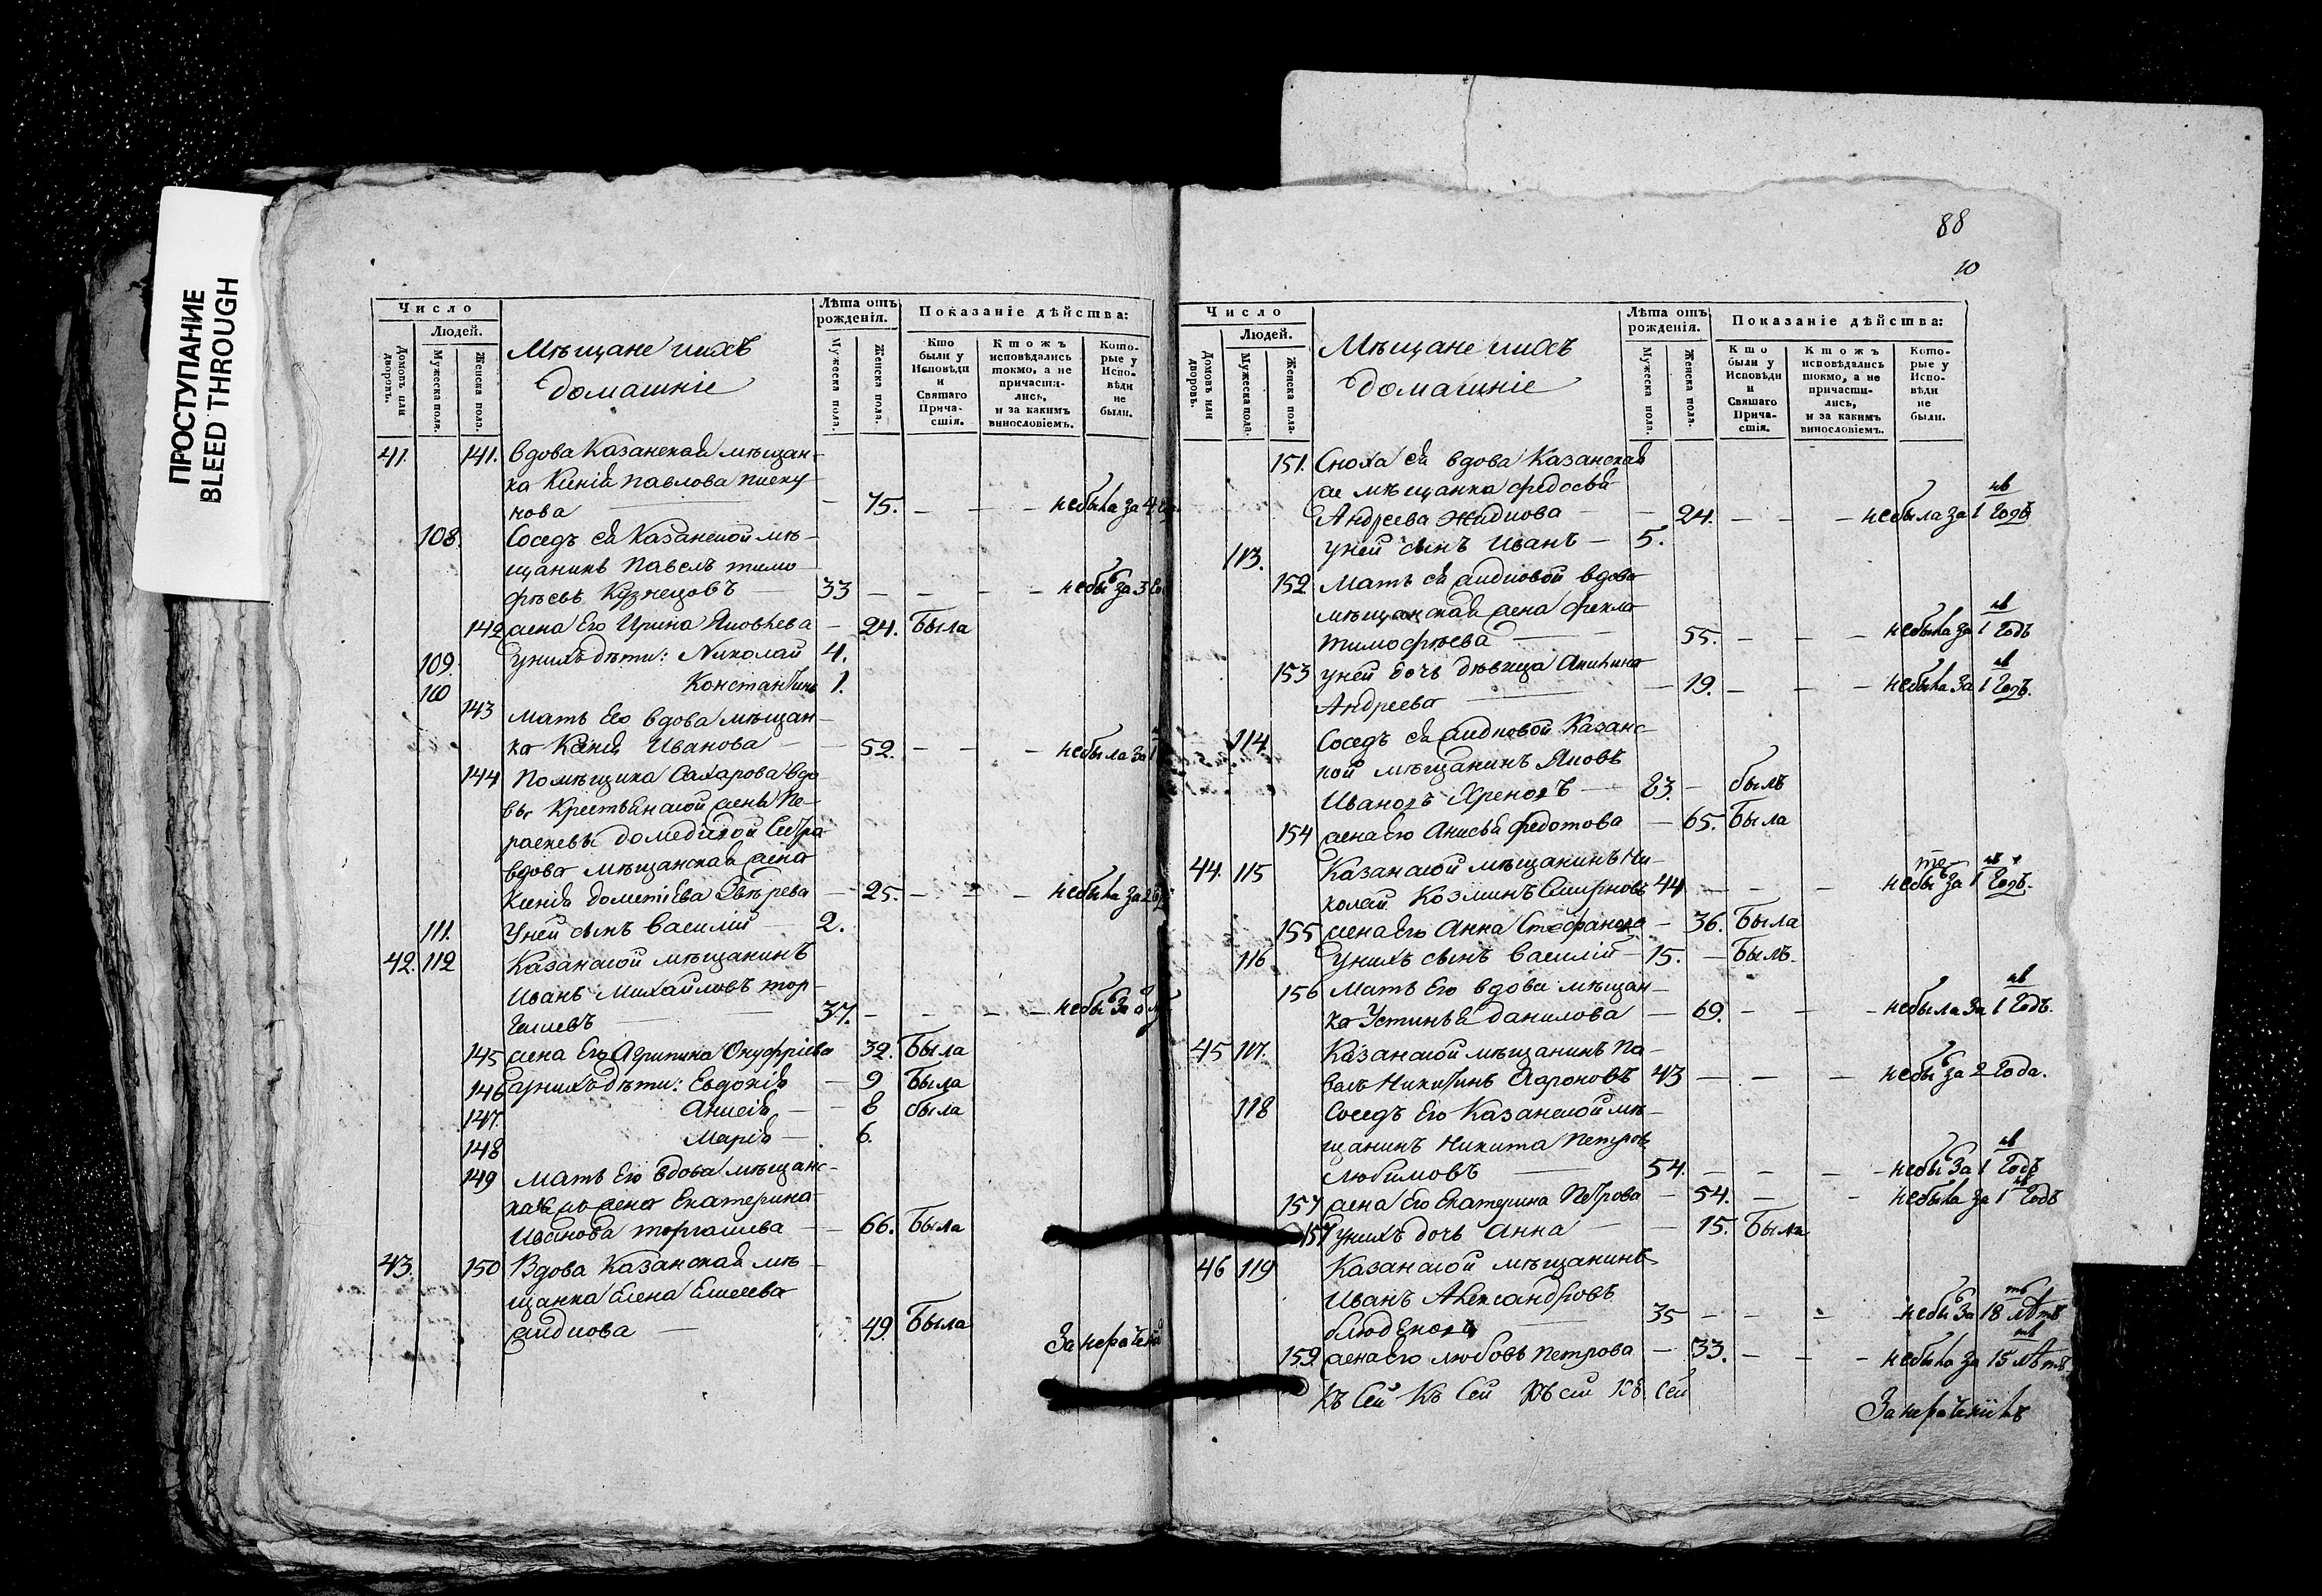 ПРОСТУПАНИЕ
BLEED THROUGH
Число
Людей.
Домовъ или дворовъ.
Мужеска пола.
Женска пола.
Мѣщане иихъ
домашніе
Лѣта отъ рожденія.
Мужеска пола.
Женска пола.
Показаніе дѣйства:
Кто были у Исповѣди и Святаго Причастія.
Ктожъ исповѣдались токмо, а не причастились, и за какимъ винословіемъ.
Которые у Исповѣди не были.
41. 141. Вдова Казанская мѣщан-
ка Ксенія Павлова
нова — 75. — небыла за 4
108. Соседъ ея Казанской мѣ-
щанинъ Павелъ тимо-
фѣевъ Кузнецовъ 33 — небы за 3
142 жена Его Ирина Яковлева — 24. Была
109. униxъ дѣти: Николай 4.
110 Константинъ 1.
143 Мать Его вдова мѣщан-
ка Ксенія Иванова — 52. — небыла за 1
144 Помѣщика Сахарова вдо-
вы Крестьянской жены Па-
раскевы
вдова мѣщанская жена
Ксенія дометіева — 25. — небыла за 2
111. Уней сынъ Василій 2.
42. 112 Казанской мѣщанинъ
Иванъ Михайловъ тор-
гашевъ 37. — небы за
145 жена Его Агрипина Онуфріева 32. Была
146 униxъ дѣти: Евдокія — 9 Была
147. Анисія — 8 была
148 Марія — 6.
149 Мать Его вдова мѣщанс-
кая жена Екатерина
Иванова торгашева — 66. Была
43. 150 Вдова Казанская мѣ-
щанка Елена Елисеева
Жидкова — 49. Была
За нераченіемъ
88
10
Число
Людей.
Домовъ или дворовъ.
Мужеска пола.
Женска пола.
Мѣщане иихъ
домашніе
Лѣта отъ рожденія.
Мужеска пола.
Женска пола.
Показаніе дѣйства:
Кто были у Исповѣди и Святаго Причастія.
Ктожъ исповѣдались токмо, а не причастились, и за какимъ винословіемъ.
Которые у Исповѣди не были.
151. Сноха ея вдова Казанская
же мѣщанка федосья
Андреева Жидкова — 24. — небыла за 1 годъ
113. уней сынъ Иванъ — 5.
152 Мать ея Жидковой вдова
мѣщанская жена фекла
Тимофѣева 55. — небыла за 1 годъ
153 уней дочь дѣвица Акилина
Андреева — 19. — небыла за 1 годъ.
114. Соседъ ея Жидковой Казанс-
кой мѣщанинъ Яковъ
Ивановъ Хреновъ — 83. — былъ
154 жена Его Анисья федотова — 65. Была
44. 115 Казанской мѣщанинъ Ни-
колай Козминъ Смирновъ 44 — небы за 1 годъ.
155 жена Его Анна Стефанова — 36. Была
116 униxъ сынъ Василій — 15. — Былъ.
156 Мать Его вдова мѣщан-
ка Устинья данилова — 69. — небыла за 1 годъ.
45 117. Казанской мѣщанинъ Па-
велъ Никитинъ Ларіоновъ 43 — небы за 2 года.
118 Соседъ Его Казанской мѣ-
щанинъ Никита Петровъ
Любимовъ 54. — небы за 1 годъ
157 жена Его Екатерина Петрова — 54. — небыла за 1 годъ
157 униxъ дочь Анна — 15. Была
46 119 Казанской мѣщанинъ
Иванъ Александровъ
блюденовъ 35 — небы за 18 лѣтъ
159 жена Его любовь Петрова — 33. — небыла за 15 лѣтъ.
Къ Сей Къ Сей Къ сей Къ Сей
За нераченіемъ